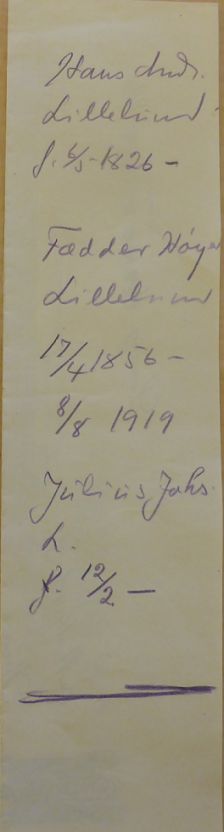 Hans Andr.
Lillelund
f. 6/5-1826 -
Fædder Høyer
Lillelund
17/4 1856 -
8/8 1919
Julius Johs.
L.
f. 12/2 -